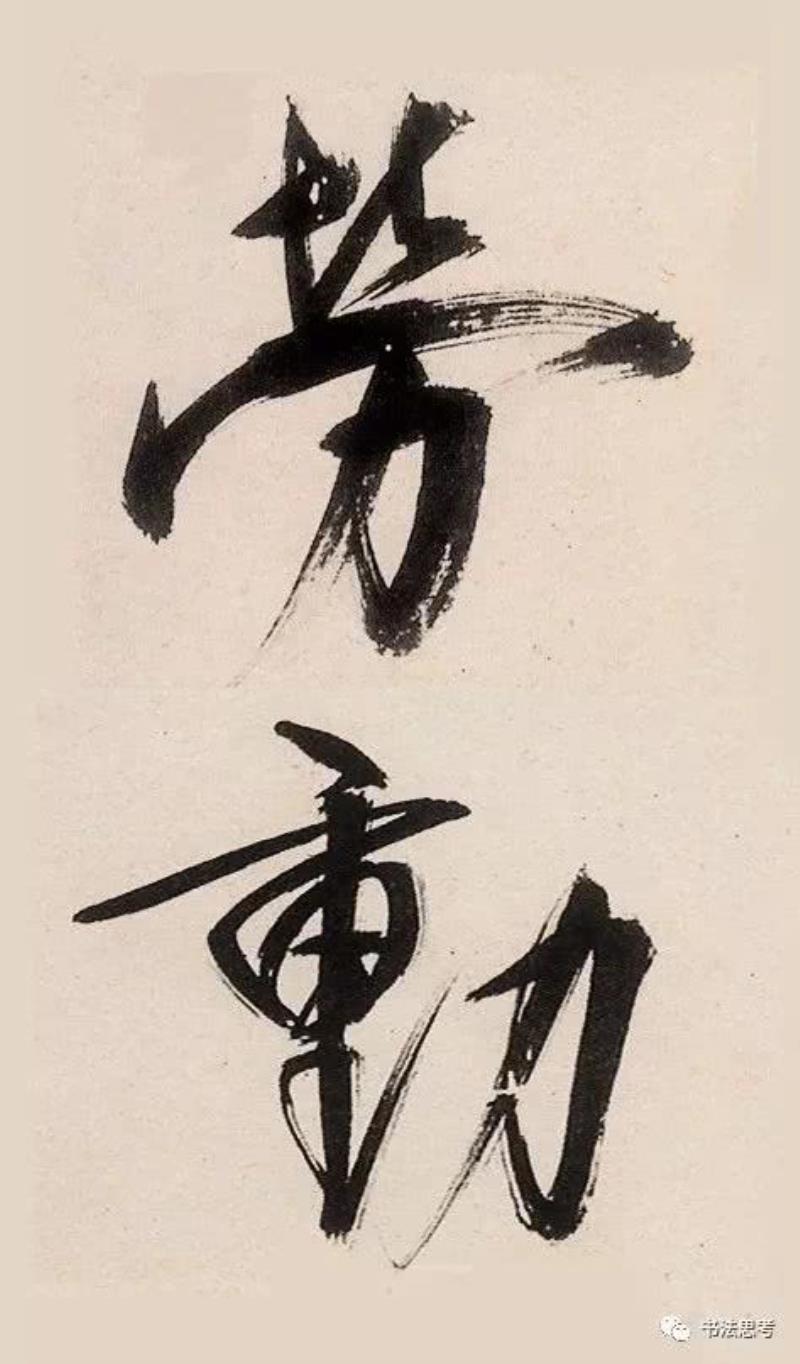 劳
動
书法思考